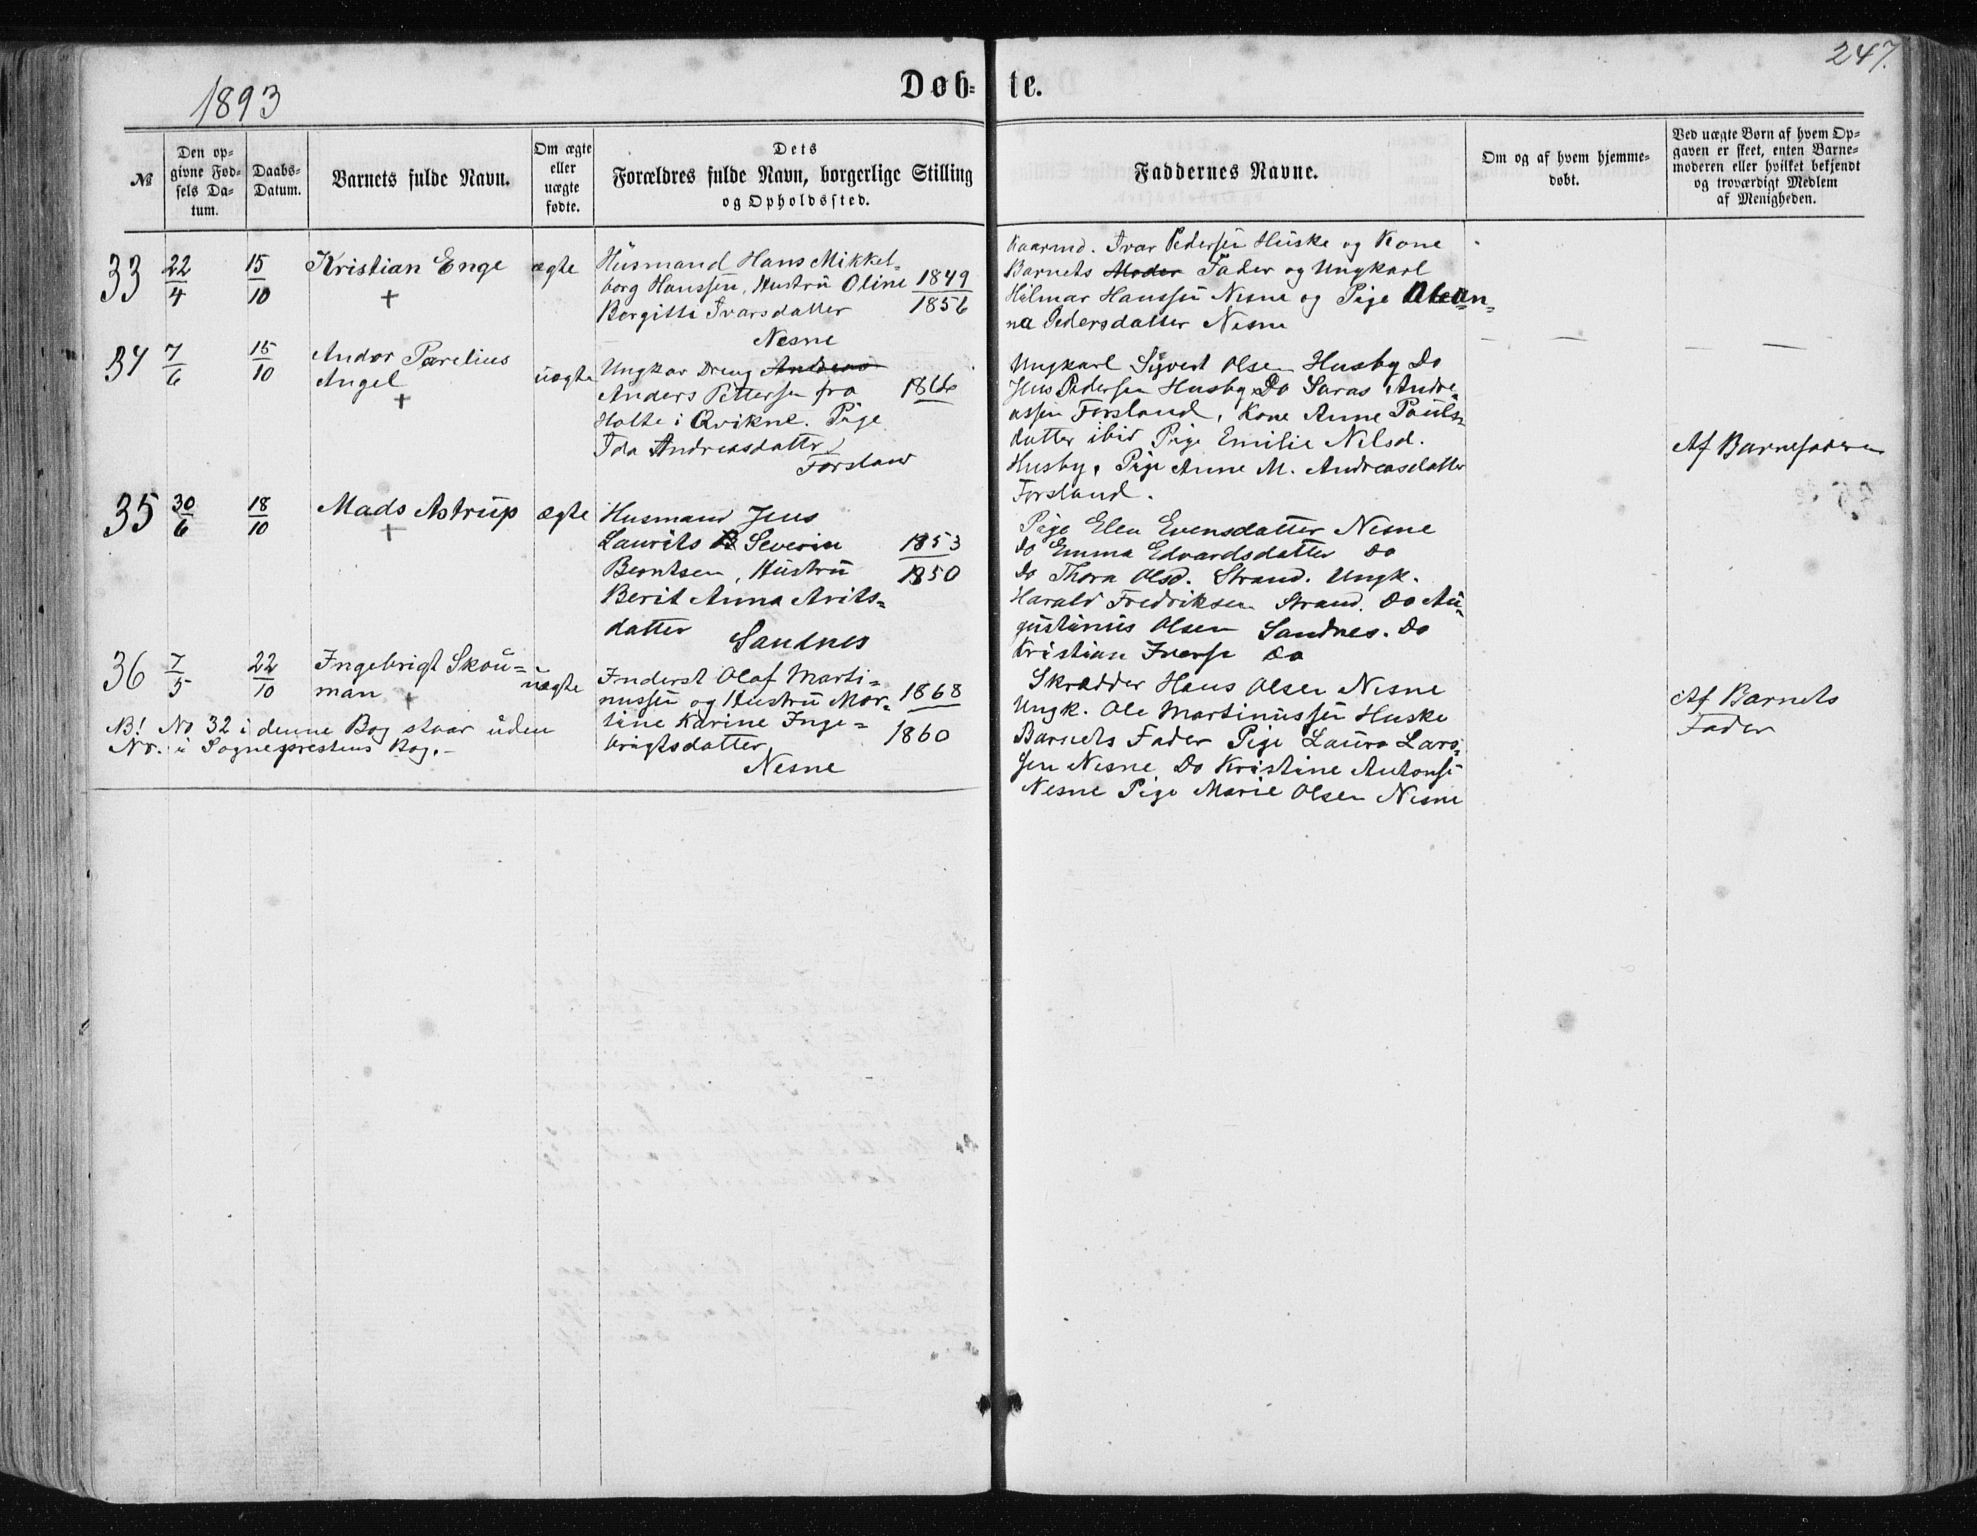 247.
1893
Døb-te.
№
Den op-
givne Fød-
sels Da-
tum.
Daabs-
Datum.
Barnets fulde Navn.
Om ægte
eller
uægte
fødte.
Dets
Forældres fulde Navn, borgerlige Stilling
og Opholdssted.
Faddernes Navne.
Om og af hvem hjemme-
døbt.
Ved uægte Børn af hvem Op-
gaven er skeet, enten Barne-
moderen eller hvilket bekjendt
og troværdigt Medlem
af Menigheden.
33
22/4
15/10
Kristian Enge
+
ægte
Husmand Hans Mikkel-
borg Hanssen, Hustru Oline
Bergitte Ivarsdatter
Nesne
1849
1856
Kaarmd. Ivar Pedersen Huske og Kone
Barnets Moder Fader og Ungkarl
Hilmar Hanssen Nesne og Pige
na Pedersdatter Nesne
34
7/6
15/10
Andor Parelius
Angel
+
uægte
Ungkar Dreng Andreas
Anders Pettersen fra
Holte i Qvikne. Pige
Ida Andreasdatter
Forsland
1866
Ungkarl Sivert Olsen Husby Do
Jens Pedersen Husby Do Saras Andre-
assen Forsland, Kone Anne Pauls-
datter ibid Pige Emilie Nilsd.
Husby, Pige Anne M. Andreasdatter
Forsland.
Af Barnefaderen
35
30/6
18/10
Mads Astrup
+
ægte
Husmand Jens
Laurits B Severin
Berntsen, Hustru
Berit Anna Arits-
datter
Sandnes
1853
1850
Pige Elen Evensdatter Nesne
Do Emma Edvardsdatter Do
Do Thora Olsd. Strand. Ungk.
Harald Fredriksen Strand. Do Au-
gustinus Olsen Sandnes. Do
Kristian Iverse Do
36
7/5
22/10
Ingebrigt Skou-
man
+
uægte
Inderst Olaf Marti-
nussen og Hustru Mar-
tine Karine Inge-
brigtsdatter
Nesne
1868
1860
Skrædder Hans Olsen Nesne
Ungk. Ole Martinussen Huske
Barnets Fader Pige Laura Lars-
sen Nesne, Do Kristine Antonse
Nesne Pige Marie Olsen Nesne
Af Barnets
Fader
NB! No. 32 i denne Bog staar uden
Nr. i Sogneprestens Bog.-